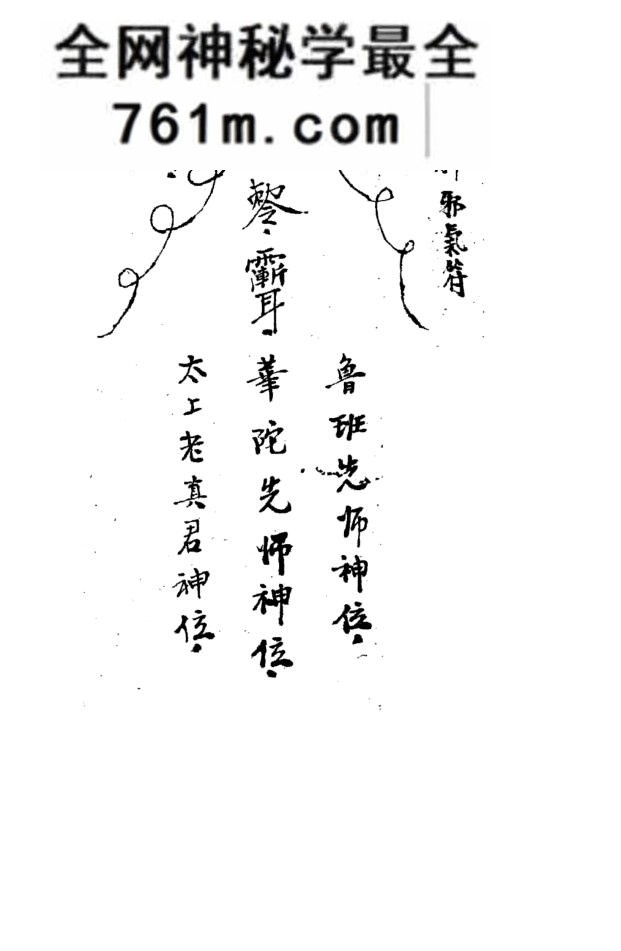 全网神秘学最全
761m.com
邪氣符
魯班先师神位
華陀先师神位
太上老真君神位